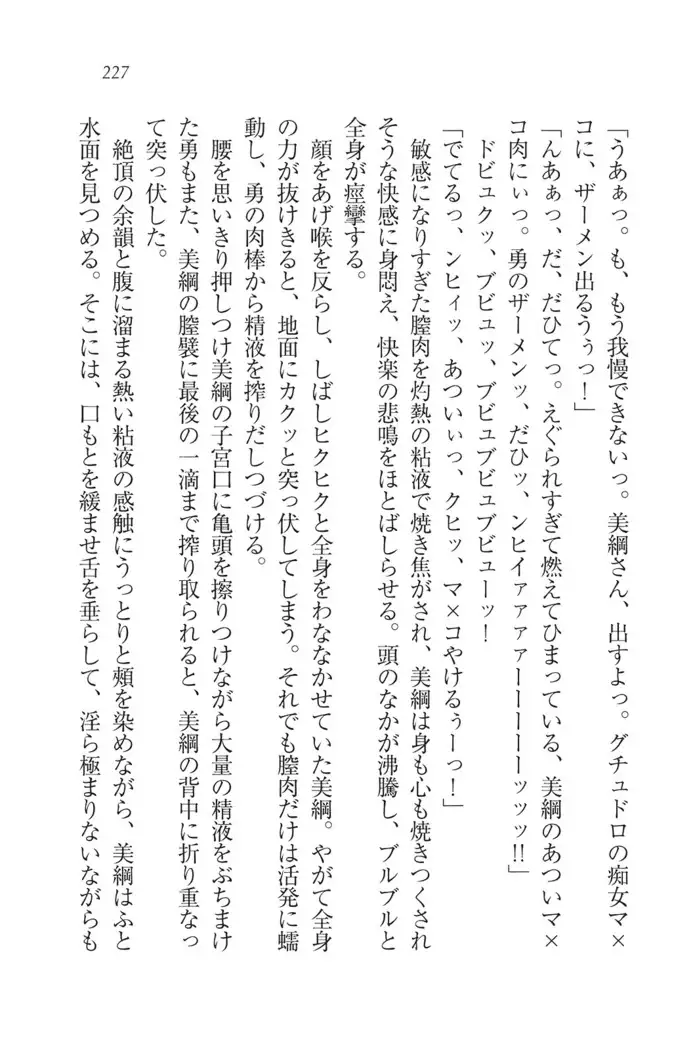 227
「うあぁっ。も、もう我慢できないっ。美綱さん、出すよっ。グチュドロの痴女マ×
コに、ザーメン出るうぅっ！」
「んあぁっ、だ、だひてっ。えぐられすぎて燃えてひまっている、美綱のあついマ×
コ肉にぃっ。勇のザーメンッ、だひッ、ンヒイァァァァーーーーーッッッ!!」
ドビュクッ、ブビュッ、ブビュブビュブビューッ！
「でてるっ、ンヒィッ、あついぃっ、クヒッ、マ×コやけるぅーっ！」
敏感になりすぎた膣肉を灼熱の粘液で焼き焦がされ、美綱は身も心も焼きつくされ
そうな快感に身悶え、快楽の悲鳴をほとばしらせる。頭のなかが沸騰し、ブルブルと
全身が痙攣する。
顔をあげ喉を反らし、しばしヒクヒクと全身をわななかせていた美綱。やがて全身
の力が抜けきると、地面にカクッと突っ伏してしまう。それでも膣肉だけは活発に蠕
動し、勇の肉棒から精液を搾りだしつづける。
腰を思いきり押しつけ美綱の子宮口に亀頭を擦りつけながら大量の精液をぶちまけ
た勇もまた、美綱の膣襞に最後の一滴まで搾り取られると、美綱の背中に折り重なっ
て突っ伏した。
絶頂の余韻と腹に溜まる熱い粘液の感触にうっとりと頬を染めながら、美綱はふと
水面を見つめる。そこには、口もとを緩ませ舌を垂らして、淫ら極まりないながらも